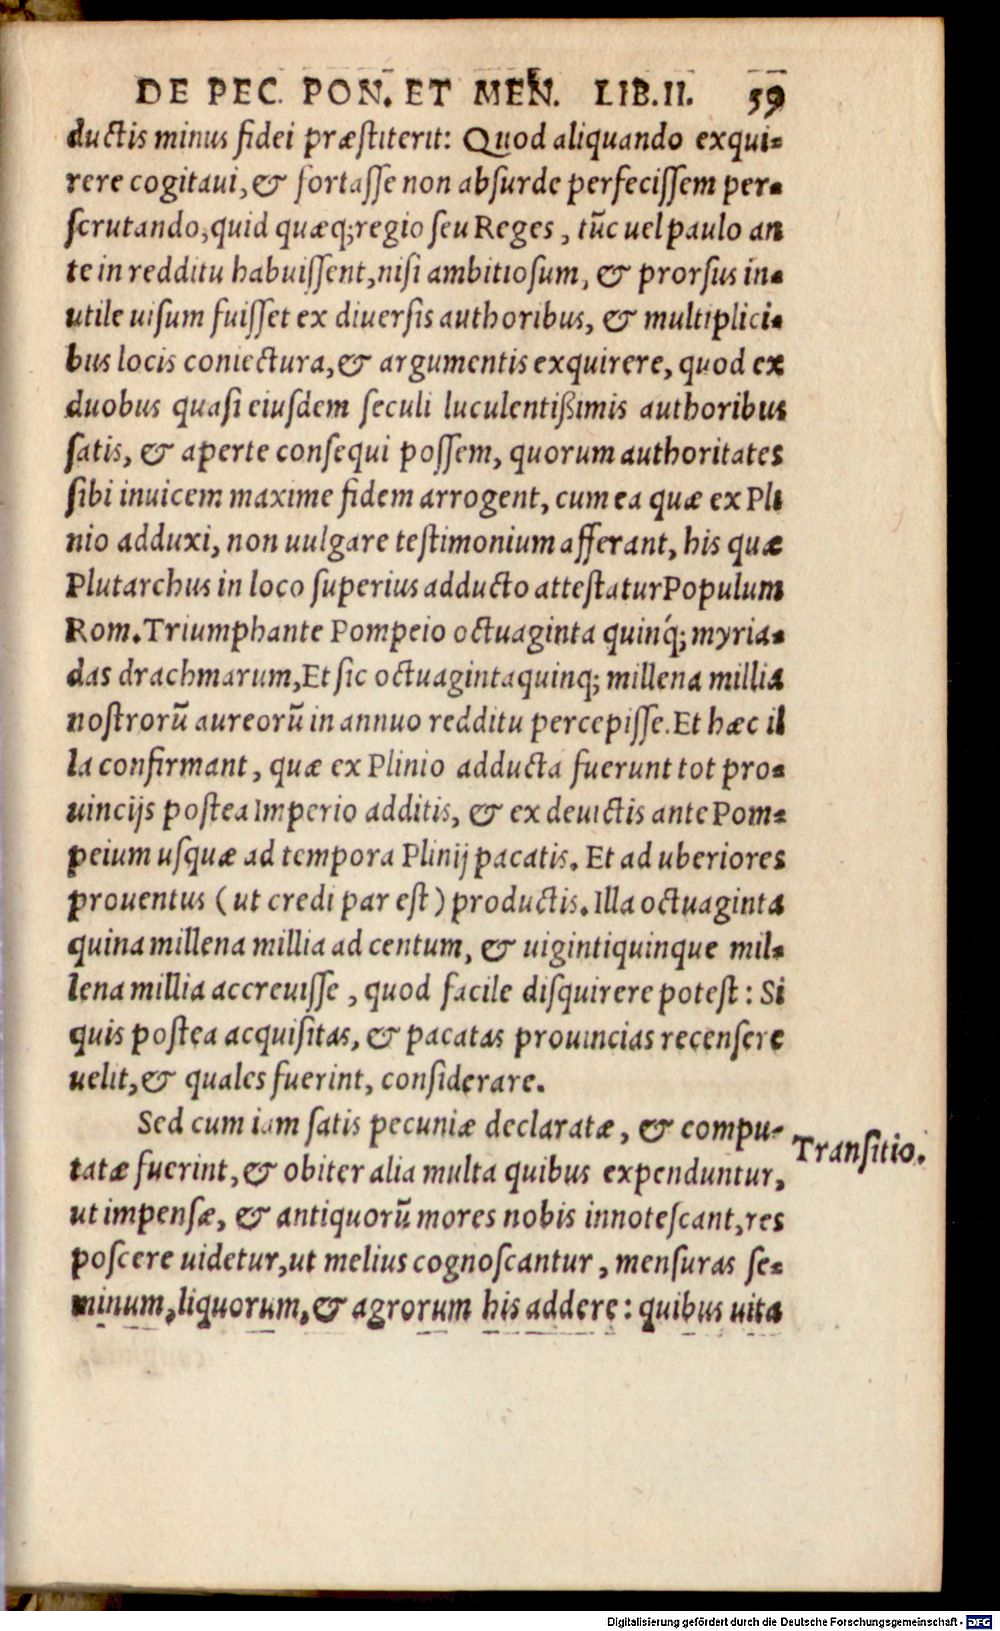 DE PEC. PON. ET MEN. LIB. II. 59
ductis minus fidei præſtiterit: Quod aliquando exqui-
rere cogitaui, & fortaſſe non abſurde perfeciſſem per-
ſcrutando, quid quæq; regio ſeu Reges, tūc uel paulo an
te in redditu habuiſſent, niſi ambitioſum, & prorſus in-
utile uiſum fuiſſet ex diuerſis authoribus, & multiplici-
bus locis coniectura, & argumentis exquirere, quod ex
duobus quaſi eiuſdem ſeculi luculentißimis authoribus
ſatis, & aperte conſequi poſſem, quorum authoritates
ſibi inuicem maxime fidem arrogent, cum ea quæ ex Pli
nio adduxi, non uulgare teſtimonium afferant, his quæ
Plutarchus in loco ſuperius adducto atteſtatur Populum
Rom. Triumphante Pompeio octuaginta quinq́; myria-
das drachmarum, Et ſic octuaginta quinq; millena millia
noſtrorū aureorū in annuo redditu percepiſſe. Et hæc il
la confirmant, quæ ex Plinio adducta fuerunt tot pro-
uincijs poſtea Imperio additis, & ex deuictis ante Pom-
peium uſquæ ad tempora Plinij pacatis. Et ad uberiores
prouentus (ut credi par eſt) productis. Illa octuaginta
quina millena millia ad centum, & uigintiquinque mil-
lena millia accreuiſſe, quod facile diſquirere poteſt: Si
quis poſtea acquiſitas, & pacatas prouincias recenſere
uelit, & quales fuerint, conſiderare.
Sed cum iam ſatis pecuniæ declaratæ, & compu-
Tranſitio.
tatæ fuerint, & obiter alia multa quibus expenduntur,
ut impenſæ, & antiquorū mores nobis innoteſcant, res
poſcere uidetur, ut melius cognoſcantur, menſuras ſe-
minum, liquorum, & agrorum his addere: quibus uita
Digitalisierung gefördert durch die Deutsche Forschungsgemeinschaft - DFG